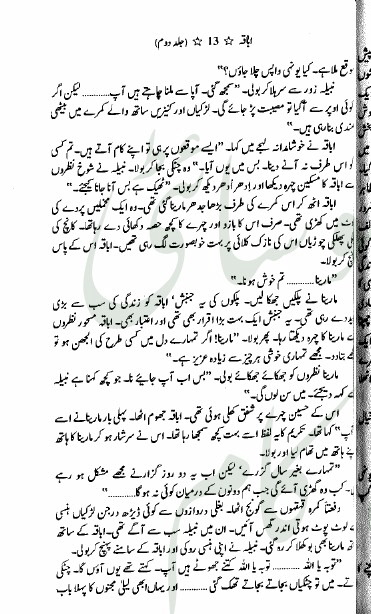 اباقہ ☆ 13 ☆ (جلد دوم)
وقع ملا ہے۔ کیا یونہی واپس چلا جاؤں؟"
نبیلہ زور سے سر ہلا کر بولی۔ "سمجھ گئی۔ آپا سے ملنا چاہتے ہیں آپ.......... لیکن اگر
کوئی اوپر سے آگیا تو مصیبت پڑ جائے گی۔ لڑکیاں اور کنیزیں ساتھ والے کمرے میں بیٹھی
مہندی بنا رہی ہیں۔"
اباقہ نے خوشامدانہ لہجے میں کہا۔ "ایسے موقعوں پر ہی تو اپنے کام آتے ہیں۔ تم کسی
کو اس طرف نہ آنے دینا۔ بس میں یوں آیا۔" وہ چٹکی بجا کر بولا۔ نبیلہ نے شوخ نظروں
سے اباقہ کا مسکین چہرہ دیکھا اور ادھر اُدھر دیکھ کر بولی۔ "ٹھیک ہے بس آنا جانا کیجئے۔"
اباقہ اٹھ کر اس کمرے کی طرف بڑھا جدھر مارینا گئی تھی۔ وہ ایک مخملیں پردے کی
اوٹ میں کھڑی تھی۔ صرف اس کا بازو اور چہرے کا کچھ حصہ دکھائی دے رہا تھا۔ کانچ کی
ہلکی پھلکی چوڑیاں اس کی نازک کلائی پر بہت خوبصورت لگ رہی تھیں۔ اباقہ اس کے پاس
پہنچ کر بولا۔
"مارینا.......... تم خوش ہو نا۔"
مارینا نے پلکیں جھکا لیں۔ پلکوں کی یہ جنبش' اباقہ کو زندگی کی سب سے بڑی
نوید دے رہی تھی۔ یہ جنبش ایک بہت بڑا اقرار بھی تھی اور اعتبار بھی۔ اباقہ مسحور نظروں
سے مارینا کا چہرہ دیکھتا رہا۔ پھر بولا۔ "مارینا! اگر تمہارے دل میں کسی طرح کی الجھن ہو تو
مجھے بتا دو۔ مجھے تمہاری خوشی ہر چیز سے زیادہ عزیز ہے۔"
مارینا نظروں کو جھکائے جھکائے بولی۔ "بس اب آپ جائیے نا۔ جو کچھ کہنا ہے نبیلہ
سے کہہ دیجئے۔ میں سن لوں گی۔"
اس کے حسین چہرے پر شفق کھلی ہوئی تھی۔ اباقہ جھوم اٹھا۔ پہلی بار مارینا نے اسے
"آپ" کہا تھا۔ تکریم کا یہ لفظ اسے بہت کچھ سمجھا رہا تھا۔ اس نے سرشار ہو کر مارینا کا ہاتھ
اپنے ہاتھ میں تھام لیا اور بولا۔
"تمہارے بغیر سال گزرے' لیکن اب یہ دو روز گزارنے مجھے مشکل ہو رہے
ہیں۔ کب وہ گھڑی آئے گی جب ہم دونوں کے درمیان کوئی نہ ہو گا.........."
دفعتاً کمرہ قہقہوں سے گونج اٹھا۔ بغلی دروازوں سے کوئی ڈیڑھ درجن لڑکیاں ہنسی
سے لوٹ پوٹ ہوتی اندر گھس آئیں۔ ان میں نبیلہ سب سے آگے تھی۔ اباقہ کے ساتھ
ساتھ مارینا بھی بوکھلا کر رہ گئی۔ نبیلہ نے اپنی ہنسی روکی اور اباقہ کے سامنے پہنچ کر بولی۔
"توبہ یا اللہ .......... توبہ یا اللہ کتنے جھوٹے ہیں آپ۔ کہتے تھے یوں آؤں گا۔ چٹکی
میں۔ تو میں چٹکیاں بجاتے بجاتے تھک گئی .......... اور یہاں ابھی لیلیٰ مجنوں کا پہلا باب